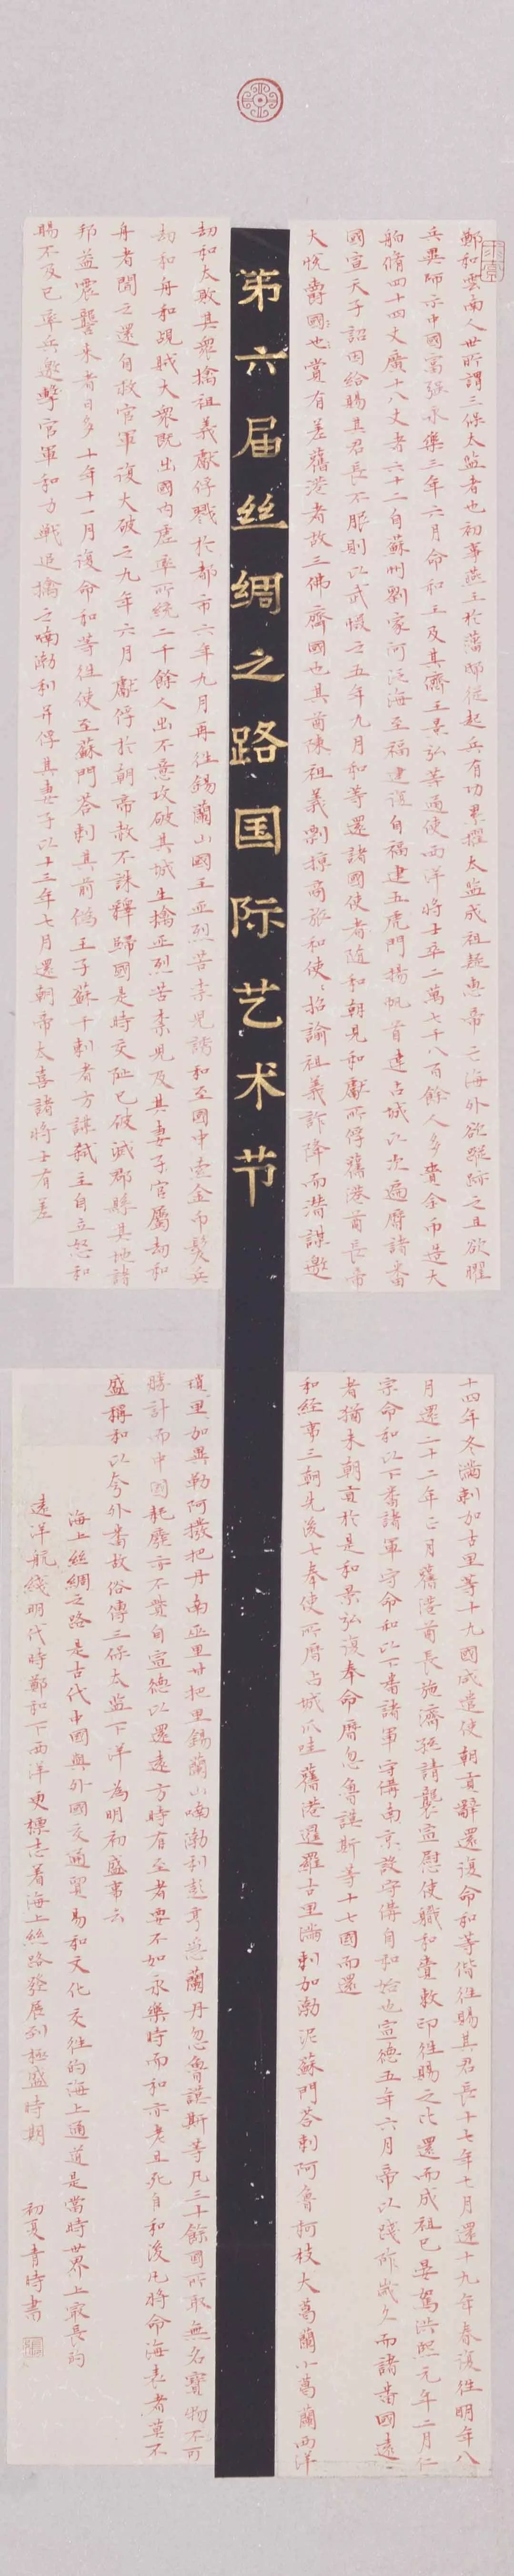 鄭和雲南人世所謂三保太監者也初事燕王於藩邸從起兵有功累擢太監成祖疑惠帝亡海外欲蹤跡之且欲曜
兵異師示中國富強永樂三年六月命和王及其儕王景弘等通使西洋將士卒二萬七千八百餘人多賫金币造大
舶脩四十四丈廣十八丈者六十二自蘇州劉家河泛海至福建復自福建五虎門揚帆首達占城以次遍歷諸番
國宣天子詔因給賜其君長不服則以武懾之五年九月和等還諸國使者隨和朝見和獻所俘舊港酋長帝
大悅爵國也賞有差舊港者故三佛齊國也其酋陳祖義剽掠商旅和使使招諭祖義詐降而潛謀邀
第六届丝绸之路国际艺术节
劫和大敗其眾擒祖義獻俘戮於都市六年九月再往錫蘭山國王亞烈苦柰兒誘和至國中索金币發兵
劫和舟和覘賊大眾既出國內虛率所統二千餘人出不意攻破其城生擒亞烈苦柰兒及其妻子官屬劫和
舟者聞之還自救官軍復大破之九年六月獻俘於朝帝赦不誅釋歸國是時交阯已破滅郡縣其地諸
邦益震讋來者日多十年十一月復命和等往使至蘇門答剌其前偽王子蘇干剌者方謀弒主自立怒和
賜不及己率兵邀擊官軍和力戰追擒之喃渤利并俘其妻子以十三年七月還朝帝大喜諸將士有差
十四年冬滿剌加古里等十九國咸遣使朝貢辭還復命和等偕往賜其君長十七年七月還十九年春復往明年八
月還二十二年正月舊港酋長施濟孫請襲宣慰使職和賫敕印往賜之比還而成祖已晏駕洪熙元年二月仁
宗命和以下番諸軍守命和以下番諸軍守備南京設守備自和始也宣德五年六月帝以踐祚歲久而諸番國遠
者猶未朝貢於是和景弘復奉命歷忽魯謨斯等十七國而還
和經事三朝先後七奉使所歷占城爪哇舊港暹羅古里滿剌加渤泥蘇門答剌阿魯柯枝大葛蘭小葛蘭西洋
瑣里加異勒阿撥把丹南巫里甘把里錫蘭山喃渤利彭亨急蘭丹忽魯謨斯等凡三十餘國所取無名寶物不可
勝計而中國耗廢亦不貲自宣德以還遠方時有至者要不如永樂時而和亦老且死自和後凡將命海表者莫不
盛稱和以夸外番故俗傳三保太監下洋為明初盛事云
海上絲綢之路是古代中國與外國交通貿易和文化交往的海上通道是當時世界上最長的
遠洋航綫明代時鄭和下西洋更標志着海上絲路發展到極盛時期 初夏青時書